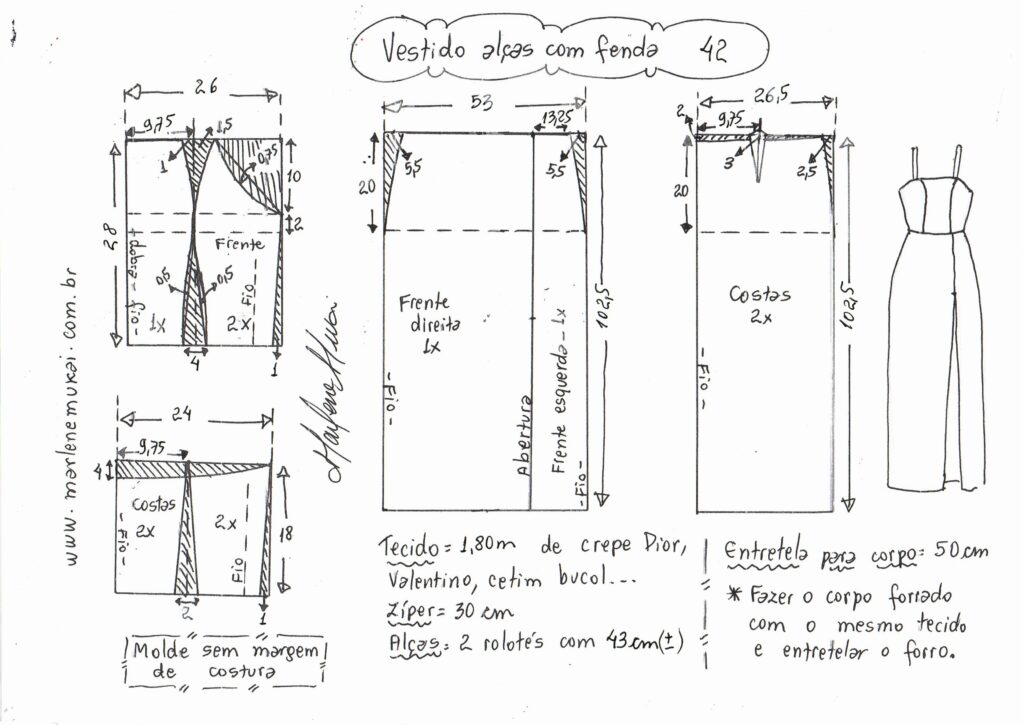 Vestido alças com fenda 42
26
9,75
1,5
1
0,75
10
2
28
Frente
dobra - fio -
0,5
0,5
Fio
1x
2x
4
1
24
9,75
4
Costas
2x
2x
- Fio -
Fio
18
2
1
Molde sem margem
de costura
www.marlenemukai.com.br
Marlene Mukai
53
13,25
5,5
5,5
20
102,5
Frente
direita
1x
- Fio -
Abertura
Frente esquerda - 1x
- Fio -
26,5
2
9,75
3
2,5
20
102,5
Costas
2x
- Fio -
Tecido = 1,80m de crepe Dior,
Valentino, cetim bucol...
Zíper = 30 cm
Alças = 2 rolotês com 43cm(±)
Entretela para corpo = 50cm
* Fazer o corpo forrado
com o mesmo tecido
e entretelar o forro.